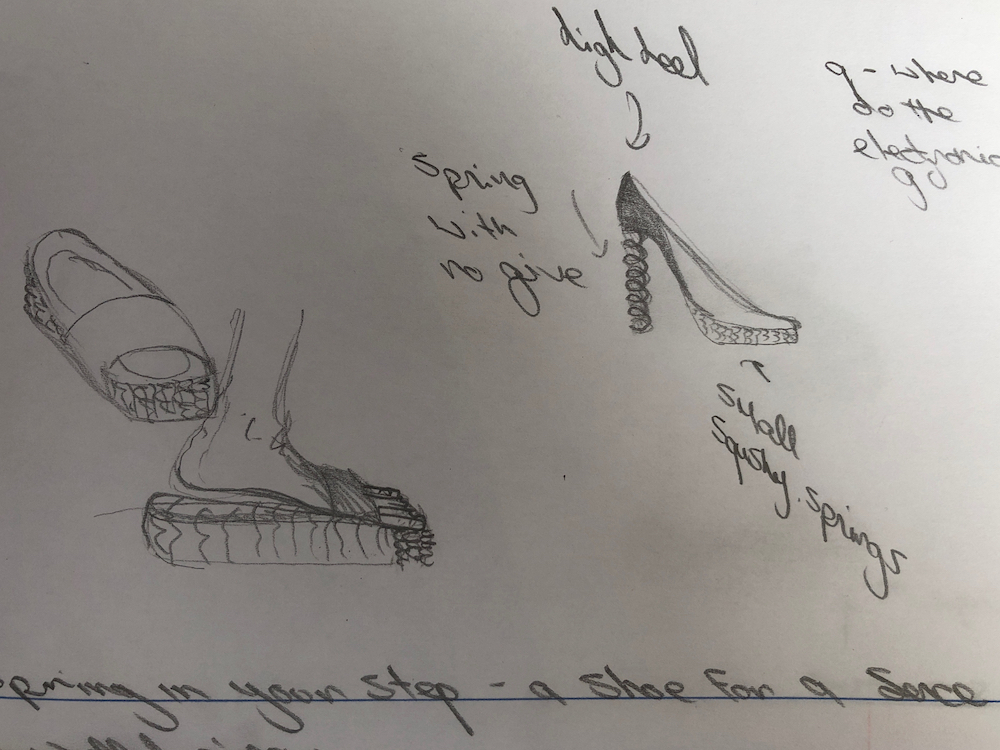 high heel
q - where
do the
electronic
g
Spring
with
no give
Small
Squishy
Springs
spring in your step - a shoe for a